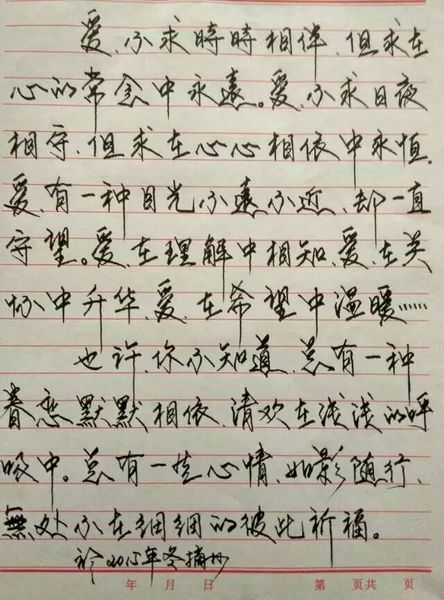 爱、不求時時相伴、但求在
心的常念中永遠。爱、不求日夜
相守、但求在心心相依中永恒。
爱、有一种目光不遠不近、却一直
守望。爱、在理解中相知、爱、在关
怀中升华、爱、在希望中温暖……
也许、你不知道、总有一种
眷恋默默相依、清欢在浅浅的呼
吸中。总有一些心情、如影随行、
無处不在细细的彼此祈福。
於2015年冬摘抄
年 月 日 第 页共 页